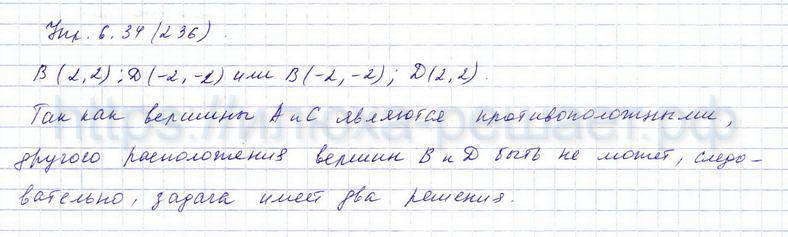 Упр. 6.34 (236).
В (2,2); D (-2,-2) или В (-2,-2); D(2,2).
Так как вершины А и С являются противоположными,
другого расположения вершин В и D быть не может, следо-
вательно, задача имеет два решения.